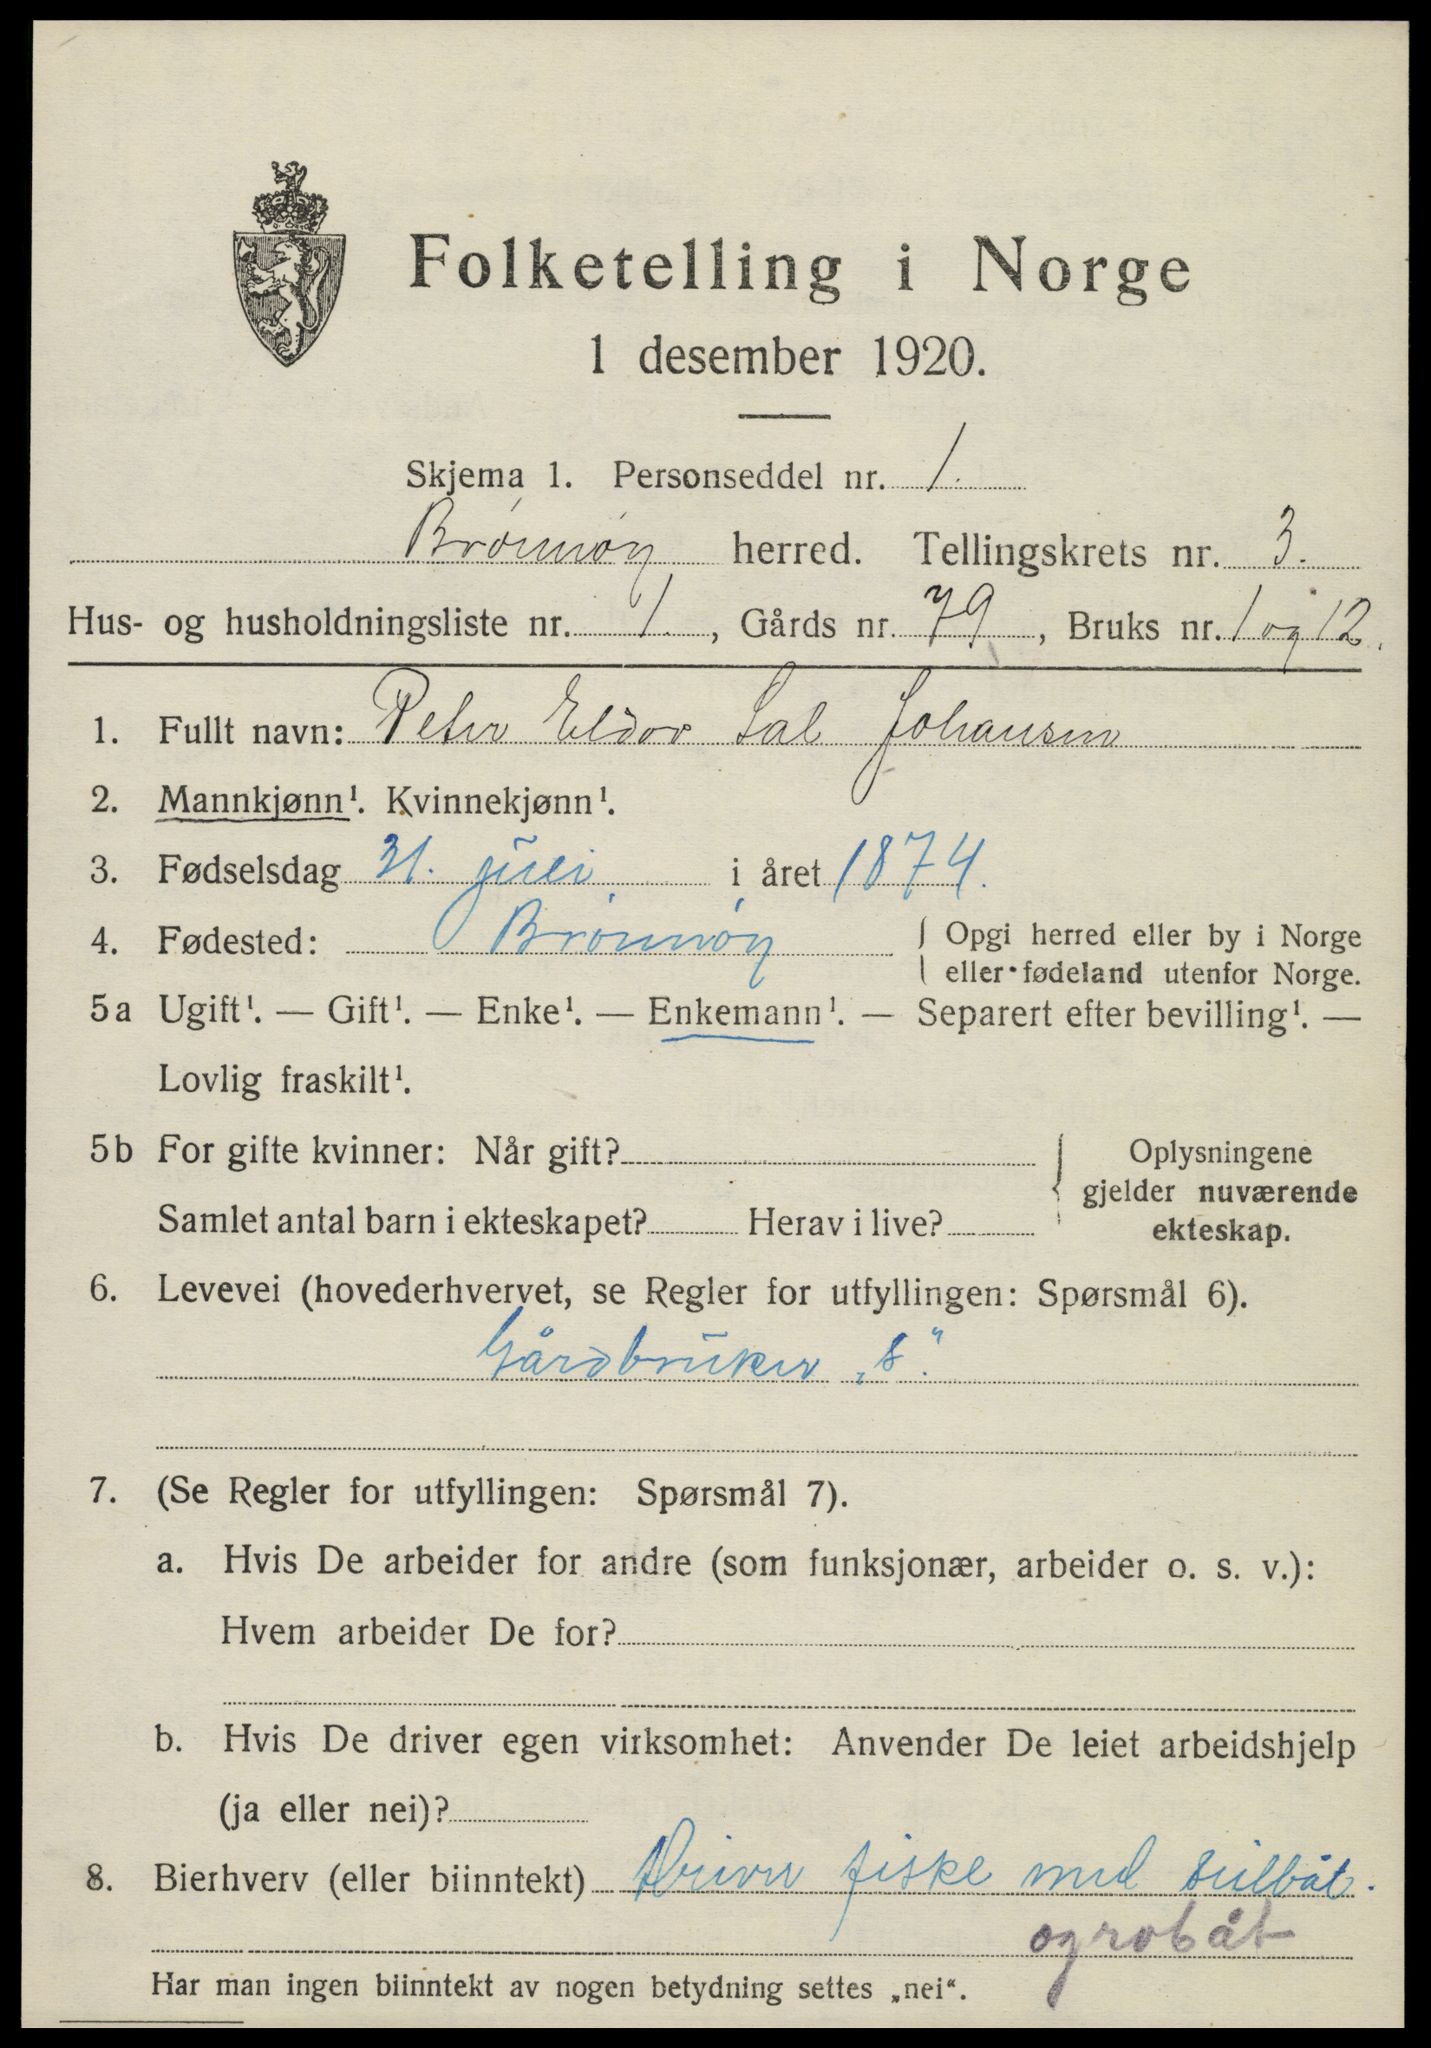 Folketelling i Norge
1 desember 1920.
Skjema 1. Personseddel nr. 1.
Brønnøy herred. Tellingskrets nr. 3.
Hus- og husholdningsliste nr. 1, Gårds nr. 79, Bruks nr. 1 og 12.
1. Fullt navn: Peter Eldor Sal Johansen
2. Mannkjønn¹. Kvinnekjønn¹.
3. Fødselsdag 21. juli i året 1874.
4. Fødested: Brønnøy { Opgi herred eller by i Norge
eller fødeland utenfor Norge.
5a Ugift¹. — Gift¹. — Enke¹. — Enkemann¹. — Separert efter bevilling¹. —
Lovlig fraskilt¹.
5b For gifte kvinner: Når gift?
Samlet antal barn i ekteskapet? Herav i live?
{ Oplysningene
gjelder nuværende
ekteskap.
6. Levevei (hovederhvervet, se Regler for utfyllingen: Spørsmål 6).
Gårdbruker „S“.
7. (Se Regler for utfyllingen: Spørsmål 7).
a. Hvis De arbeider for andre (som funksjonær, arbeider o. s. v.):
Hvem arbeider De for?
b. Hvis De driver egen virksomhet: Anvender De leiet arbeidshjelp
(ja eller nei)?
8. Bierhverv (eller biinntekt) Driver fiske med seilbåt.
og robåt
Har man ingen biinntekt av nogen betydning settes „nei“.